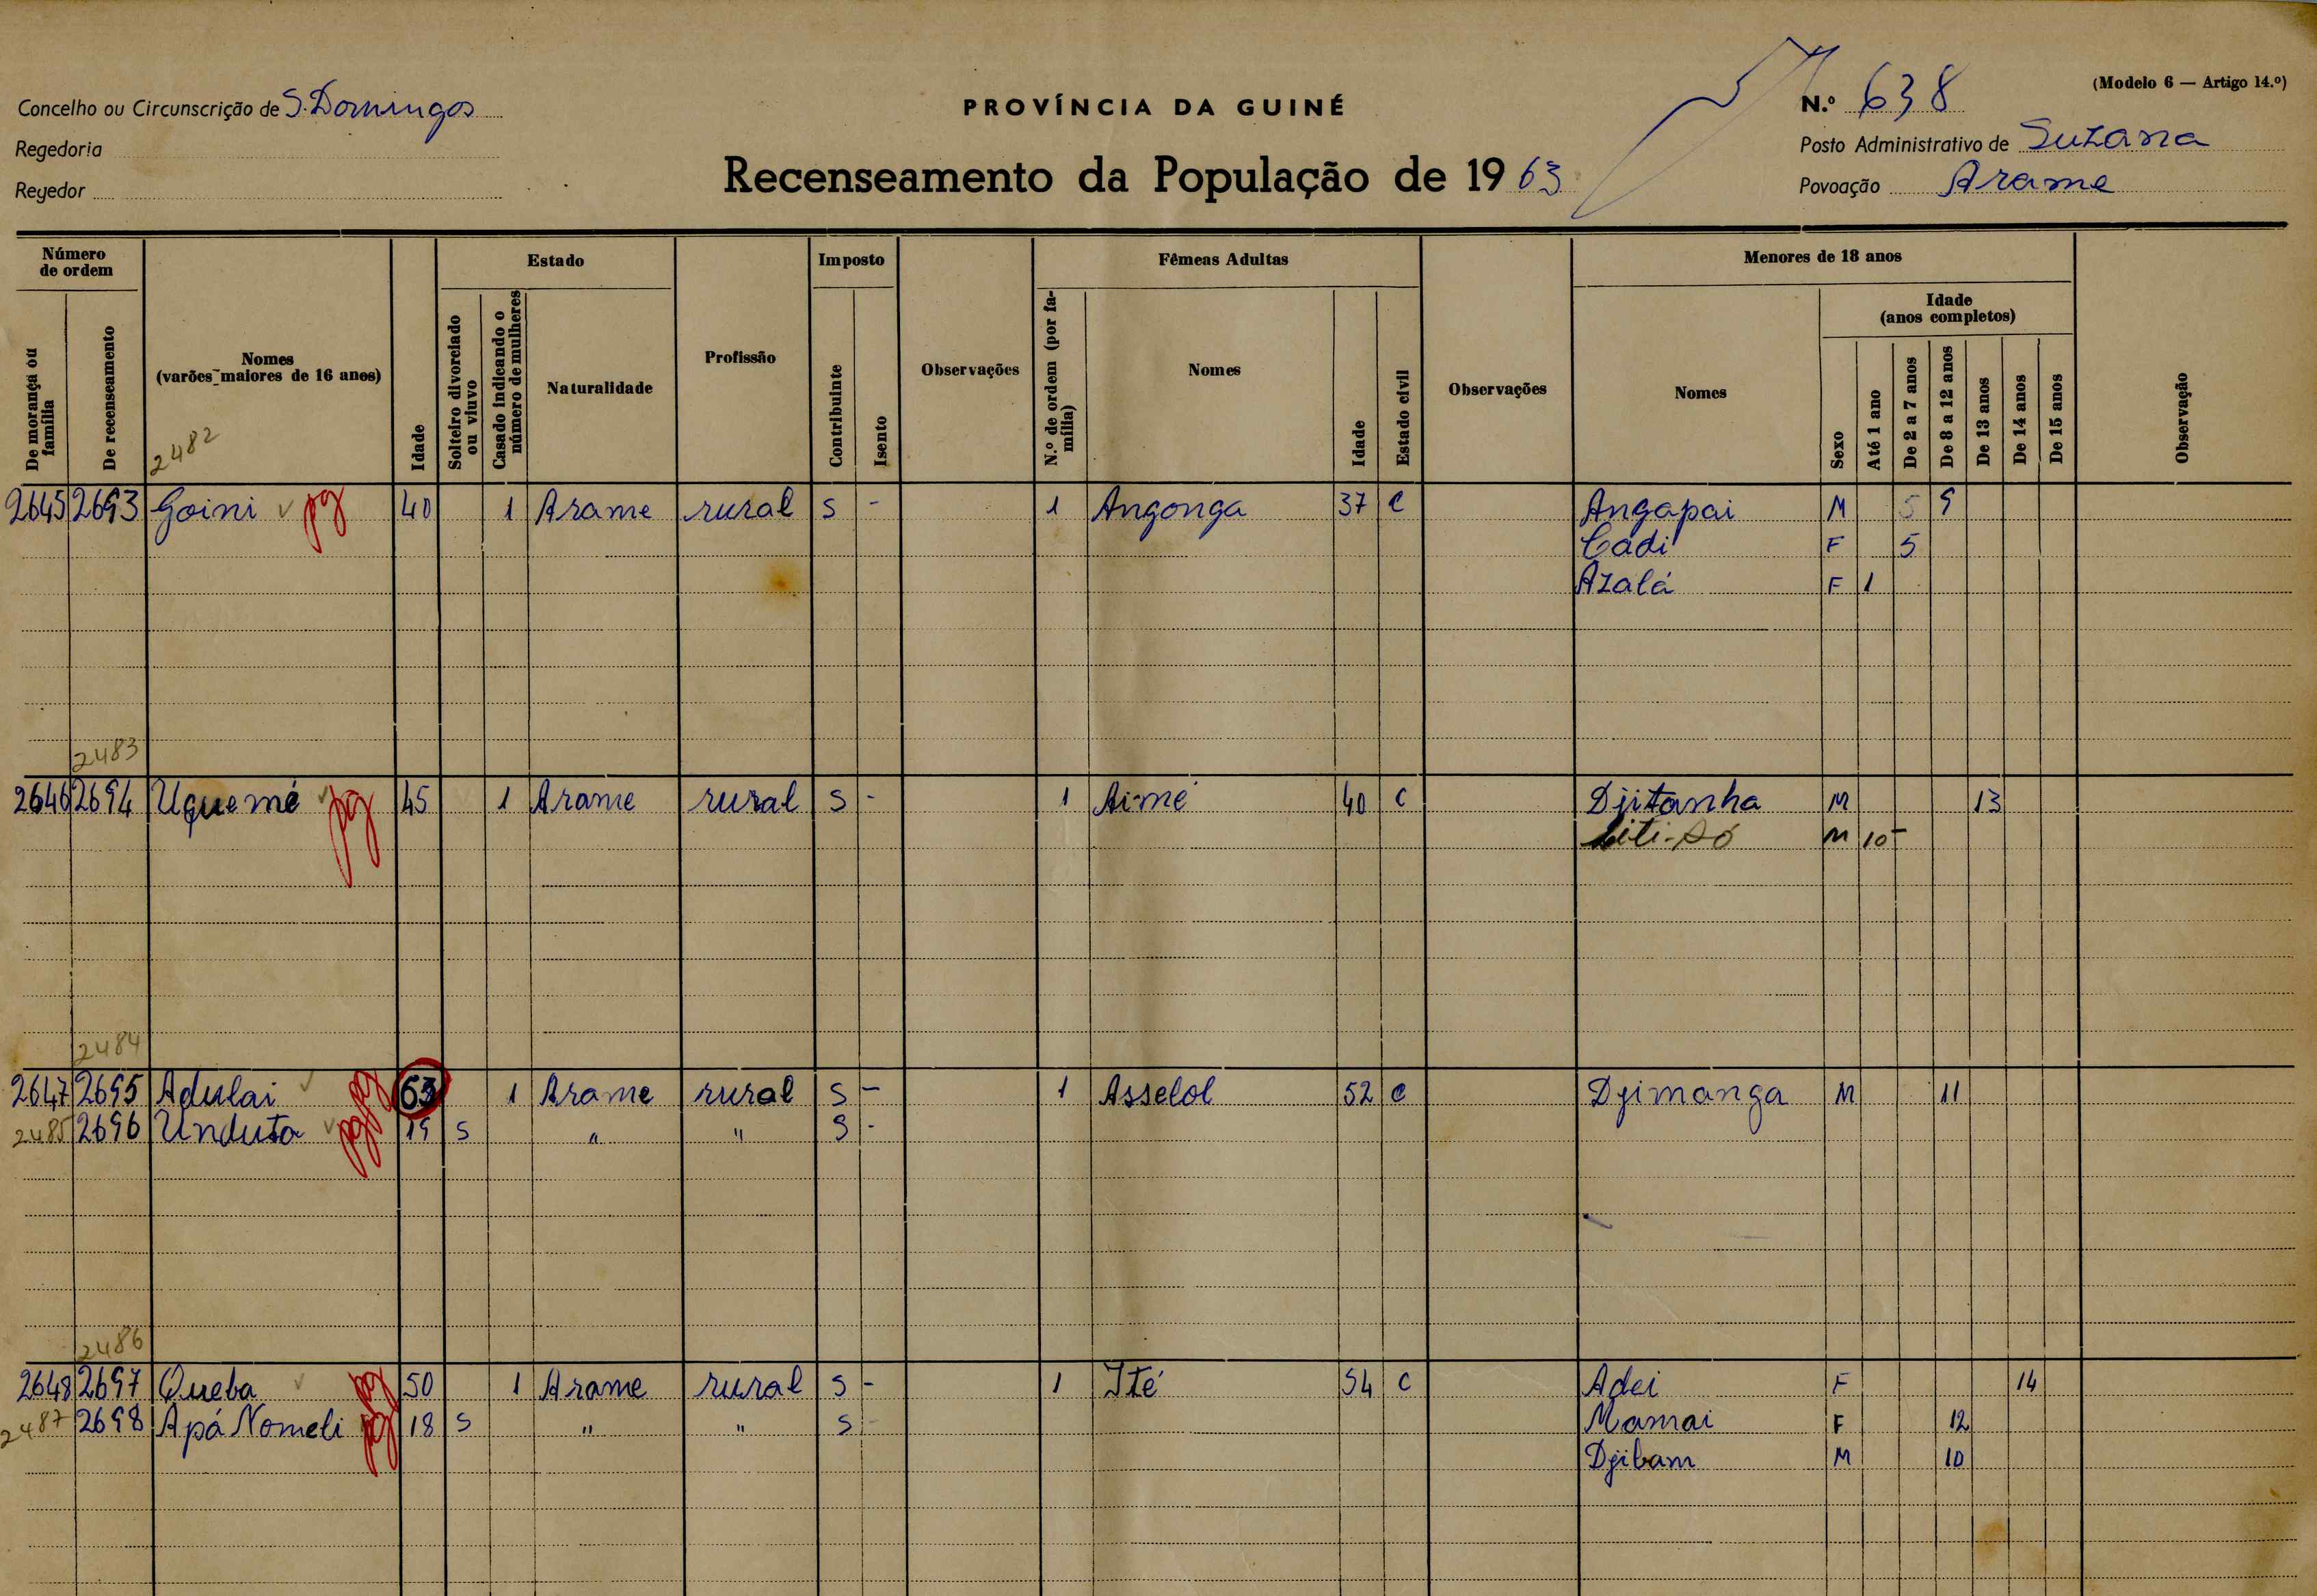 (Modelo 6 — Artigo 14.º)
Concelho ou Circunscrição de S. Domingos
PROVÍNCIA DA GUINÉ
N.º 638
Regedoria
Posto Administrativo de Suzana
Regedor
Recenseamento da População de 19 63
Povoação Arame
Número de ordem
De morança ou família
De recenseamento
Nomes (varões maiores de 16 anos)
2482
Idade
Estado
Solteiro divorciado ou viuvo
Casado indicando o número de mulheres
Naturalidade
Profissão
Imposto
Contribuinte
Isento
Observações
Fêmeas Adultas
N.º de ordem (por família)
Nomes
Idade
Estado civil
Observações
Menores de 18 anos
Nomes
Idade (anos completos)
Sexo
Até 1 ano
De 2 a 7 anos
De 8 a 12 anos
De 13 anos
De 14 anos
De 15 anos
Observação
2645 2693 Goini pg 40 1 Arame rural S - 1 Angonga 37 C Angapai M 5 9
Cadi F 5
Azalá F 1
2483
2646 2694 Uquemé pg 45 1 Arame rural S - 1 Aimé 40 C Djitanha M 13
M 10
2484
2647 2695 Adulai pg 63 1 Arame rural S - 1 Asselol 52 C Djimanga M 11
2485 2696 Unduta pg 19 S " " S -
2486
2648 2697 Queba pg 50 1 Arame rural S - 1 Ité 54 C Adei F 14
2487 2698 Apá Nomeli pg 18 S " " S - Mamai F 12
Djibam M 10